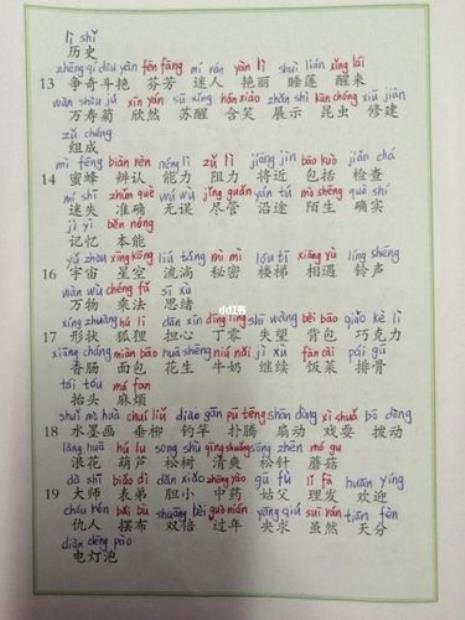 lì shǐ
历史
zhēng qí dòu yàn fēn fāng mí rén yàn lì shuì lián xǐng lái
13 争奇斗艳 芬芳 迷人 艳丽 睡莲 醒来
wàn shòu jú xīn rán sū xǐng hán xiào zhǎn shì kūn chóng xiū jiàn
万寿菊 欣然 苏醒 含笑 展示 昆虫 修建
zǔ chéng
组成
mì fēng biàn rèn néng lì zǔ lì jiāng jìn bāo kuò jiǎn chá
14 蜜蜂 辨认 能力 阻力 将近 包括 检查
mí shī zhǔn què wú wù jǐng guǎn yán tú mò shēng què shí
迷失 准确 无误 尽管 沿途 陌生 确实
jì yì běn néng
记忆 本能
yǔ zhòu xīng kōng liú tǎng mì mì lóu tī xiāng yù líng shēng
16 宇宙 星空 流淌 秘密 楼梯 相遇 铃声
wàn wù chéng fǎ sī xù
万物 乘法 思绪
xíng zhuàng hú li dān xīn dīng líng shī wàng bēi bāo qiǎo kè lì
17 形状 狐狸 担心 丁零 失望 背包 巧克力
xiāng cháng miàn bāo huā shēng niú nǎi jì xù fàn cài pái gǔ
香肠 面包 花生 牛奶 继续 饭菜 排骨
tái tóu má fan
抬头 麻烦
shuǐ mò huà chuí liǔ diào gān pū téng shān dòng xì shuǎ bō dòng
18 水墨画 垂柳 钓竿 扑腾 扇动 戏耍 拨动
làng huā hú lu sōng shù qīng shuǎng sōng zhēn mó gu
浪花 葫芦 松树 清爽 松针 蘑菇
dà shī biǎo dì dǎn xiǎo zhōng yào gū fu lǐ fà huān yíng
19 大师 表弟 胆小 中药 姑父 理发 欢迎
chóu rén bǎi bù shuāng bèi guò nián yāng qiú suī rán tiān fèn
仇人 摆布 双倍 过年 央求 虽然 天分
diàn dēng pào
电灯泡
小红书